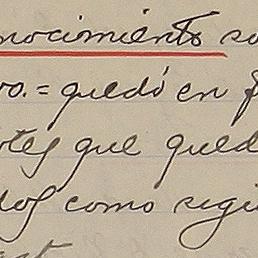 nocimiento so
vo. = quedó en f
otes que qued
dos como regi